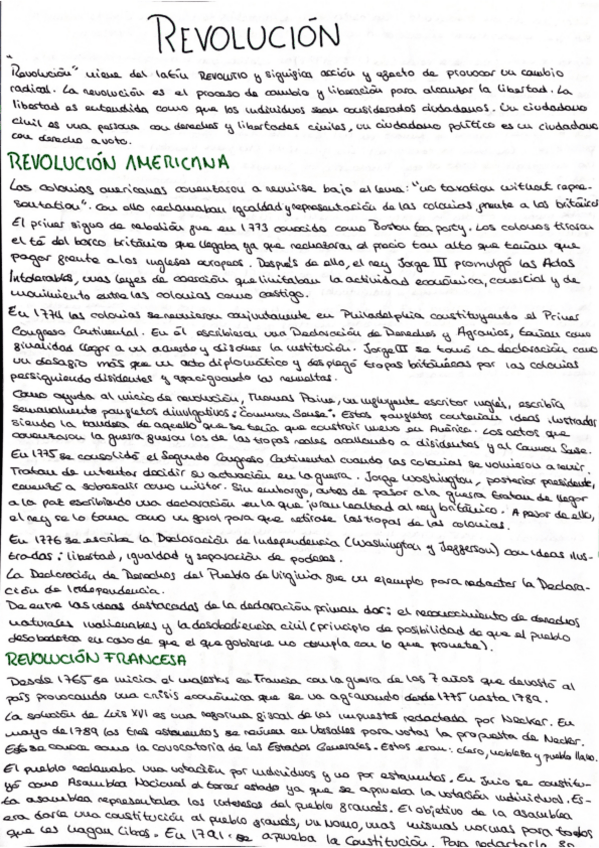 REVOLUCIÓN
"Revolución" viene del latín REVOLUTIO y significa acción y efecto de provocar un cambio
radical. La revolución es el proceso de cambio y liberación para alcanzar la libertad. La
libertad es entendida como que los individuos sean considerados ciudadanos. Un ciudadano
civil es una persona con derechos y libertades civiles, un ciudadano político es un ciudadano
con derecho a voto.
REVOLUCIÓN AMERICANA
Las colonias americanas comenzaron a reunirse bajo el lema: "no taxation without repre-
sentation". Con ello reclamaban igualdad y representación de las colonias frente a los británicos
El primer signo de rebelión fue en 1773 conocido como Boston tea party. Los colonos tiraron
el té del barco británico que llegaba ya que rechazaron el precio tan alto que tenían que
pagar frente a los ingleses europeos. Después de ello, el rey Jorge III promulgó las Actas
Intolerables, unas leyes de coerción que limitaban la actividad económica, comercial y de
movimiento entre las colonias como castigo.
En 1774 las colonias se reunieron conjuntamente en Philadelphia constituyendo el Primer
Congreso Continental. En él escribieron una Declaración de Derechos y Agravios, tenían como
finalidad llegar a un acuerdo y disolver la institución. Jorge III se tomó la declaración como
un desafío más que un acto diplomático y desplegó tropas británicas por las colonias
persiguiendo disidentes y apaciguando las revueltas.
Como ayuda al inicio de revolución, Thomas Paine, un influyente escritor inglés, escribía
semanalmente panfletos divulgativos: "Common Sense". Estos panfletos contenían ideas ilustradas
siendo la bandera de aquello que se tenía que construir nuevo en América. Los actos que
comenzaron la guerra fueron los de las tropas reales acallando a disidentes y al Common Sense.
En 1775 se consolidó el Segundo Congreso Continental cuando las colonias se volvieron a reunir.
Tratan de intentar decidir su actuación en la guerra. Jorge Washington, posterior presidente,
comenzó a sobresalir como militar. Sin embargo, antes de pasar a la guerra tratan de llegar
a la paz escribiendo una declaración en la que juran lealtad al rey británico. A pesar de ello,
el rey se lo toma como un farol para que retirase las tropas de las colonias.
En 1776 se escribe la Declaración de Independencia (Washington y Jefferson) con ideas ilus-
tradas: libertad, igualdad y separación de poderes.
La Declaración de Derechos del Pueblo de Virginia fue un ejemplo para redactar la Declara-
ción de Independencia.
De entre las ideas destacadas de la declaración priman dos: el reconocimiento de derechos
naturales inalienables y la desobediencia civil (principio de posibilidad de que el pueblo
desobedezca en caso de que el que gobierne no cumpla con lo que promete).
REVOLUCIÓN FRANCESA
Desde 1765 se inicia el malestar en Francia con la guerra de los 7 años que devastó al
país provocando una crisis económica que se va agravando desde 1775 hasta 1789.
La solución de Luis XVI es una reforma fiscal de los impuestos redactada por Necker. En
mayo de 1789 los tres estamentos se reúnen en Versalles para votar la propuesta de Necker.
Esto se conoce como la convocatoria de los Estados Generales. Estos eran: clero, nobleza y pueblo llano.
El pueblo reclamaba una votación por individuos y no por estamentos. En Junio se constitu-
yó como Asamblea Nacional el tercer estado ya que se aprueba la votación individual. Es-
ta asamblea representaba los intereses del pueblo francés. El objetivo de la asamblea
era darle una constitución al pueblo francés, un nomo, unas mismas normas para todos
que les hagan libres. En 1791 se aprueba la Constitución. Para redactarla se